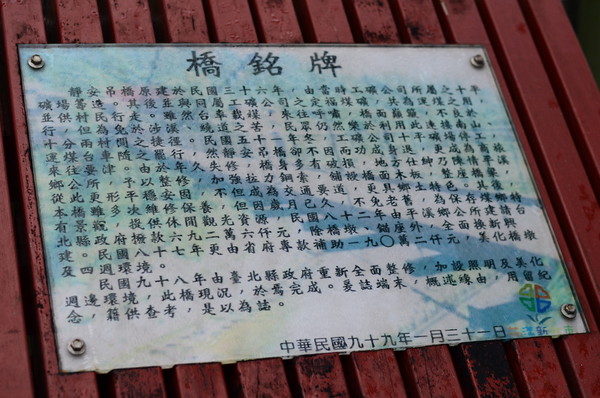 橋銘牌
靜安吊橋原建於民國三十六年,由當時工礦公司所屬之十平
礦場籌造。其後並與同屬工礦公司之定福煤礦,共為運煤之用,
並供村民行走。雖然台車載煤,來往呼嘯,橋面顛簸,不良於
行,但為免於涉溪、繞道之苦,民眾仍然樂於利用此連接南山、
十分兩村之捷徑。民國五十一年冬,工礦公司十平礦場停工,
運煤台車隨之罷行,然靜安吊橋卻不因而功成身退,更成為商旅
來往要津。由於年久失修,橋身多有破損,地方仕紳乃陳情平溪
鄉公所,予以整修,加強拉力鋼索,舖設橋面木板,整座橋樑
從此更形平穩安固,不但成為交通要道,更具鄉土特色。其後,
本橋雖多次維修保養,但因歲月已久,不免老舊,為保存煤鄉特
有景觀,提供休閒觀光資源,民國八十二年由平溪鄉公所建請台
北縣政府撥款六九二萬六仟元,除橋墩、錨座外,全面換新興
建。民國八十七年更由省府專款補助一九〇萬二仟元,美化橋墩
及四週環境。
民國九十八年由臺北縣政府重新全面整修,加設照明及美化
週邊環境,此橋現況,於焉完成。爰誌端末,概述緣由,用留紀
念,藉供查考,是以為誌。
中華民國九十九年一月三十一日